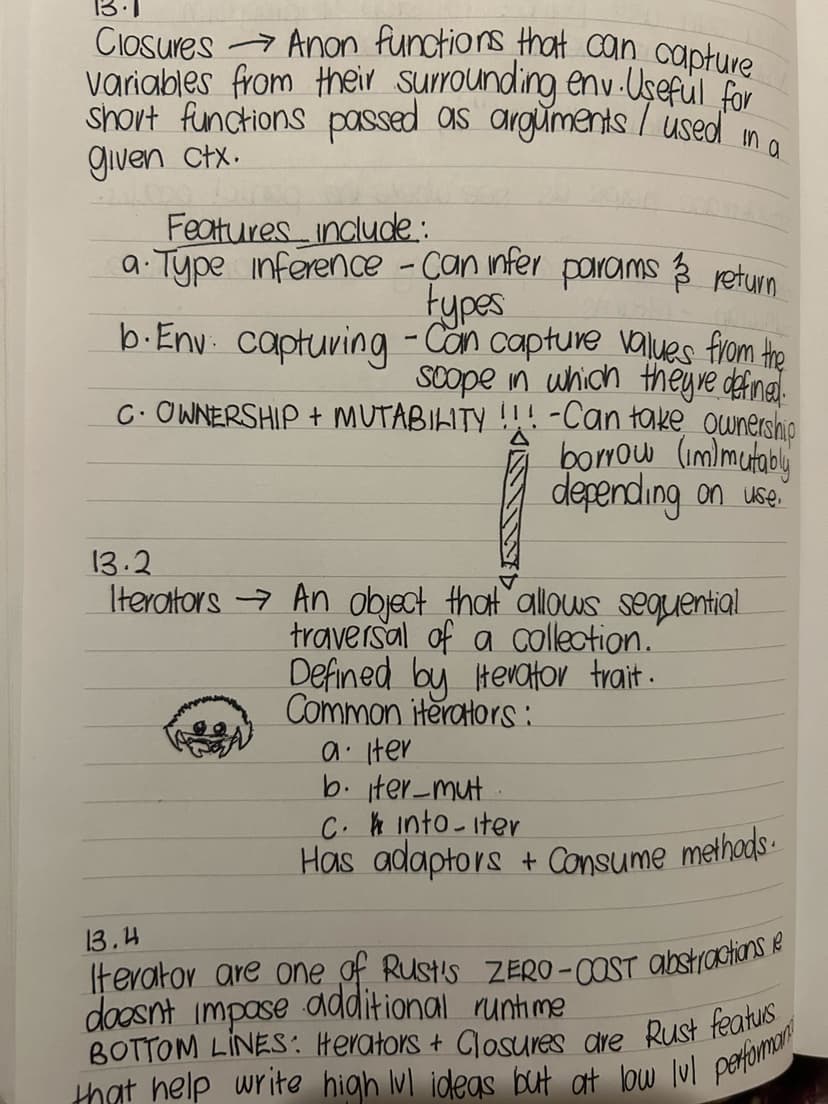 13.1
Closures → Anon functions that can capture
variables from their surrounding env. Useful for
short functions passed as arguments / used in a
given ctx.
Features include:
a. Type inference - Can infer params & return
types
b. Env. capturing - Can capture values from the
scope in which theyre defined.
c. OWNERSHIP + MUTABILITY !!! - Can take ownership
borrow (im)mutably
depending on use.
13.2
Iterators → An object that allows sequential
traversal of a collection.
Defined by Iterator trait.
Common iterators:
a. iter
b. iter_mut
c. into_iter
Has adaptors + Consume methods.
13.4
Iterator are one of Rust's ZERO-COST abstractions ie
doesnt impose additional runtime
BOTTOM LINES: Iterators + Closures are Rust featurs
that help write high lvl ideas but at low lvl performan